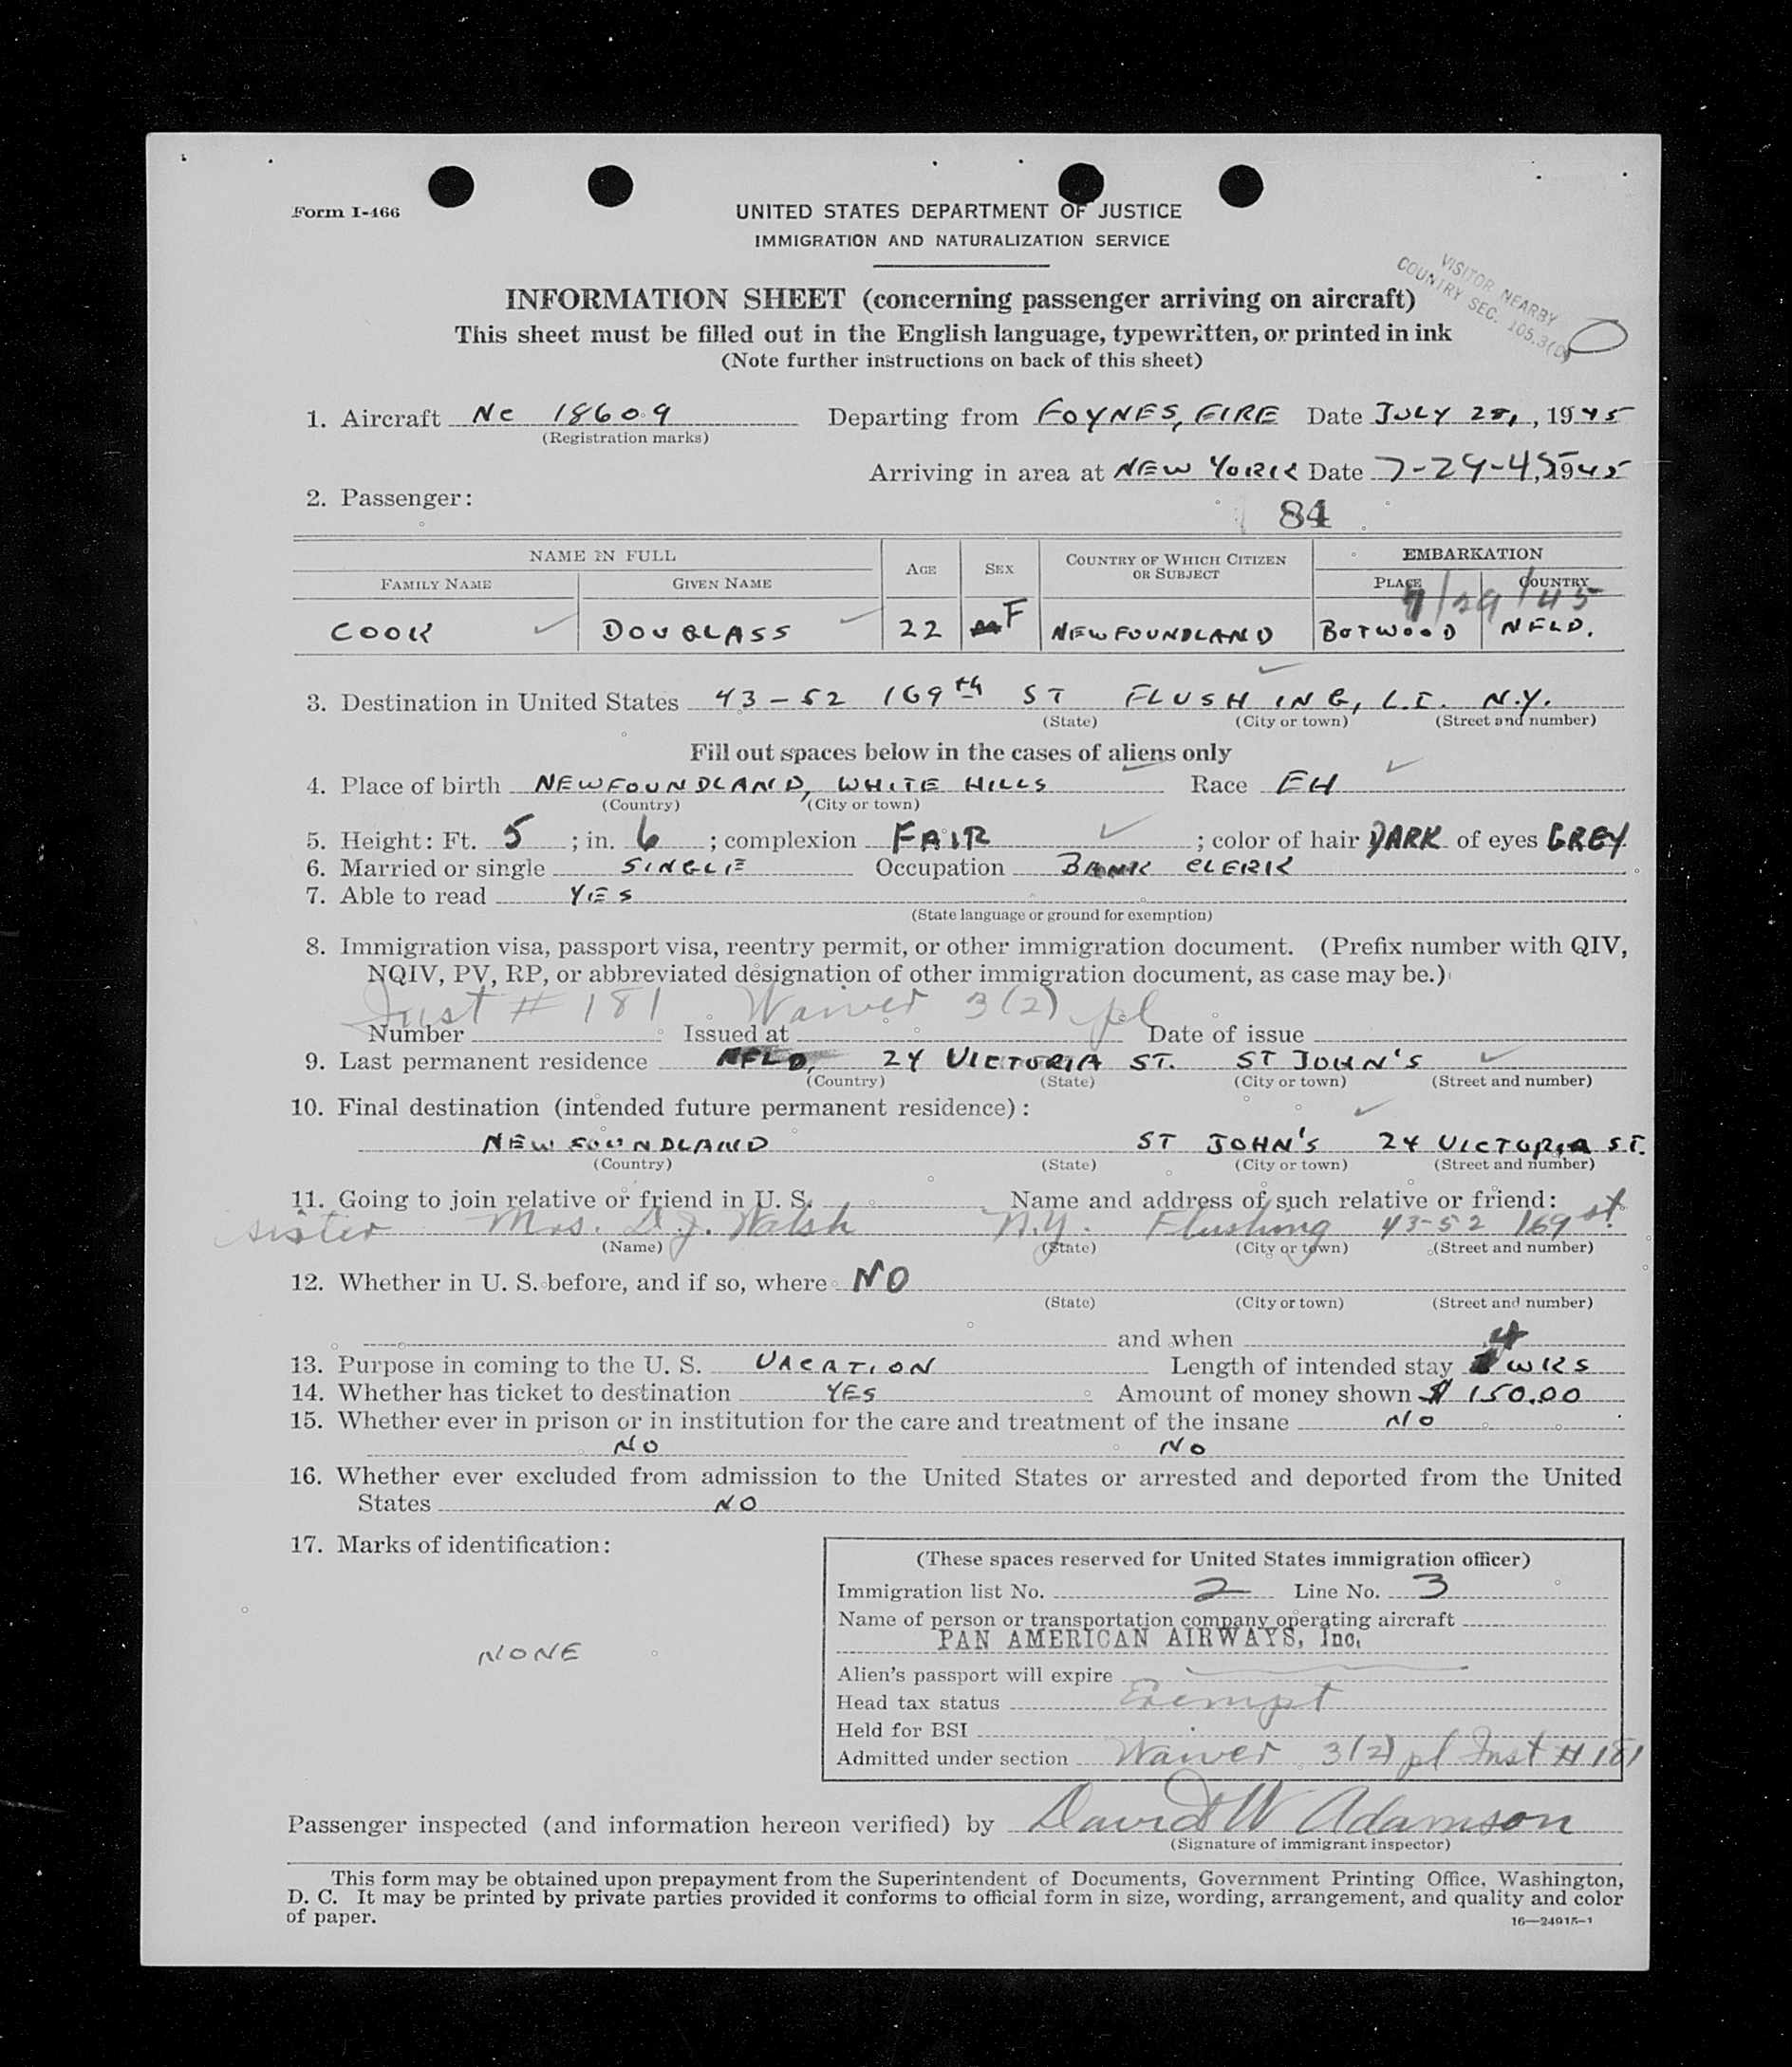 Form I-466
UNITED STATES DEPARTMENT OF JUSTICE
IMMIGRATION AND NATURALIZATION SERVICE
VISITOR NEARBY
COUNTRY SEC. 105.3(
INFORMATION SHEET (concerning passenger arriving on aircraft)
This sheet must be filled out in the English language, typewritten, or printed in ink
(Note further instructions on back of this sheet)
1. Aircraft NC 18609 Departing from FOYNES, EIRE Date JULY 28, , 1945
(Registration marks)
Arriving in area at NEW YORK Date 7-29-45, 1945
2. Passenger:
84
NAME IN FULL AGE SEX COUNTRY OF WHICH CITIZEN OR SUBJECT EMBARKATION
FAMILY NAME GIVEN NAME PLACE COUNTRY
7/29/45
COOK DOUGLASS 22 F NEWFOUNDLAND BOTWOOD NFLD.
3. Destination in United States 43-52 169th ST FLUSHING, L.I. N.Y.
(State) (City or town) (Street and number)
Fill out spaces below in the cases of aliens only
4. Place of birth NEWFOUNDLAND, WHITE HILLS Race EH
(Country) (City or town)
5. Height: Ft. 5 ; in. 6 ; complexion FAIR ; color of hair DARK of eyes GREY
6. Married or single SINGLE Occupation BANK CLERK
7. Able to read YES
(State language or ground for exemption)
8. Immigration visa, passport visa, reentry permit, or other immigration document. (Prefix number with QIV,
NQIV, PV, RP, or abbreviated designation of other immigration document, as case may be.)
Inst # 181 Waiver 3(2) pl
Number Issued at Date of issue
9. Last permanent residence NFLD, 24 VICTORIA ST. ST JOHN'S
(Country) (State) (City or town) (Street and number)
10. Final destination (intended future permanent residence):
NEWFOUNDLAND ST JOHN'S 24 VICTORIA ST.
(Country) (State) (City or town) (Street and number)
11. Going to join relative or friend in U. S. Name and address of such relative or friend:
sister Mrs. D.J. Walsh N.Y. Flushing 43-52 169 st.
(Name) (State) (City or town) (Street and number)
12. Whether in U. S. before, and if so, where NO
(State) (City or town) (Street and number)
and when
13. Purpose in coming to the U. S. VACATION Length of intended stay 4 WKS
14. Whether has ticket to destination YES Amount of money shown $ 150.00
15. Whether ever in prison or in institution for the care and treatment of the insane NO
NO NO
16. Whether ever excluded from admission to the United States or arrested and deported from the United
States NO
17. Marks of identification:
NONE
(These spaces reserved for United States immigration officer)
Immigration list No. 2 Line No. 3
Name of person or transportation company operating aircraft
PAN AMERICAN AIRWAYS, Inc.
Alien's passport will expire
Head tax status Exempt
Held for BSI
Admitted under section Waiver 3(2) pl Inst # 181
Passenger inspected (and information hereon verified) by David W Adamson
(Signature of immigrant inspector)
This form may be obtained upon prepayment from the Superintendent of Documents, Government Printing Office, Washington,
D. C. It may be printed by private parties provided it conforms to official form in size, wording, arrangement, and quality and color
of paper.
16—24915-1